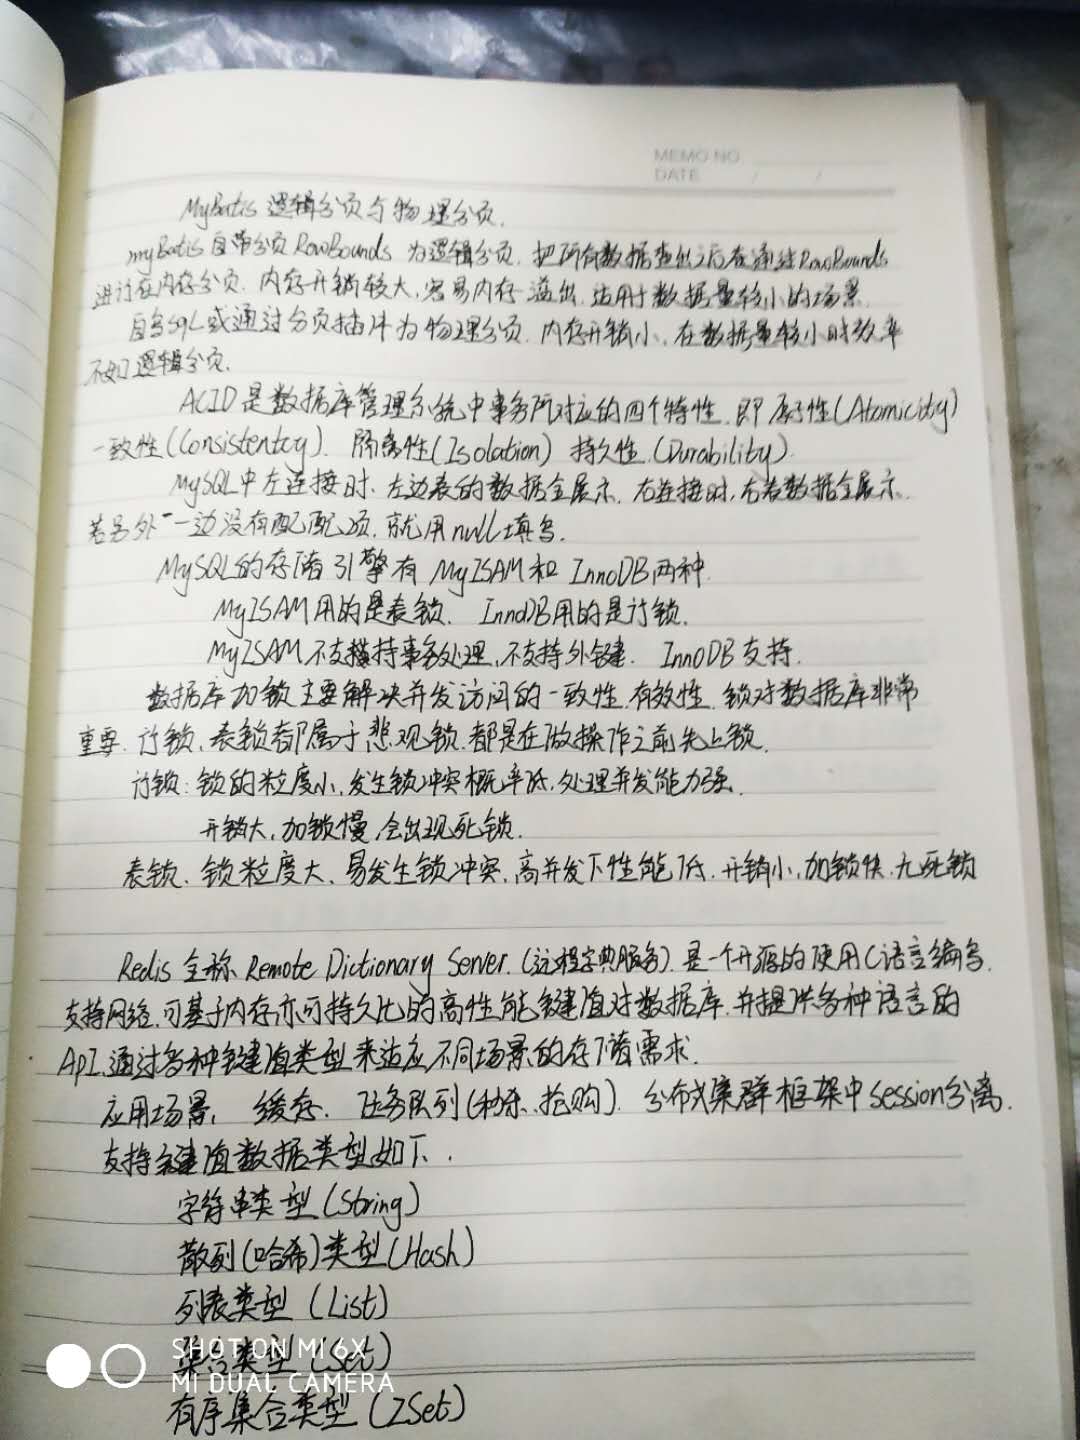 MEMO NO
DATE / /
MyBatis 逻辑分页与物理分页.
myBatis自带分页RowBounds 为逻辑分页. 把所有数据查出之后在通过RowBounds
进行在内存分页. 内存开销较大, 容易内存溢出. 适用于数据量较小的场景.
自写SQL或通过分页插件为物理分页. 内存开销小, 在数据量较小时效率
不如逻辑分页.
ACID是数据库管理系统中事务所对应的四个特性. 即原子性(Atomicity)
一致性(Consistentcy). 隔离性(Isolation) 持久性.(Durability).
MySQL中左连接时. 左边表的数据全展示. 右连接时, 右表数据全展示.
若另外一边没有匹配项. 就用null填写.
MySQL的存储引擎有 MyISAM和 InnoDB两种.
MyISAM用的是表锁. InnoDB用的是行锁.
MyISAM不支持事务处理, 不支持外键. InnoDB支持.
数据库加锁主要解决并发访问的一致性. 有效性. 锁对数据库非常
重要. 行锁、表锁都属于悲观锁. 都是在做操作之前先上锁.
行锁: 锁的粒度小, 发生锁冲突概率低, 处理并发能力强.
开销大, 加锁慢, 会出现死锁.
表锁. 锁粒度大、易发生锁冲突, 高并发下性能低. 开销小, 加锁快. 无死锁
Redis 全称 Remote Dictionary Server.(远程字典服务). 是一个开源的使用C语言编写.
支持网络. 可基于内存亦可持久化的高性能键值对数据库. 并提供多种语言的
API. 通过多种键值类型来适应不同场景的存储需求.
应用场景: 缓存. 任务队列(秒杀、抢购). 分布式集群框架中session分离.
支持键值数据类型如下.
字符串类型(String)
散列(哈希)类型(Hash)
列表类型 (List)
集合类型 (Set)
有序集合类型 (ZSet)
SHOT ON MI 6X
MI DUAL CAMERA